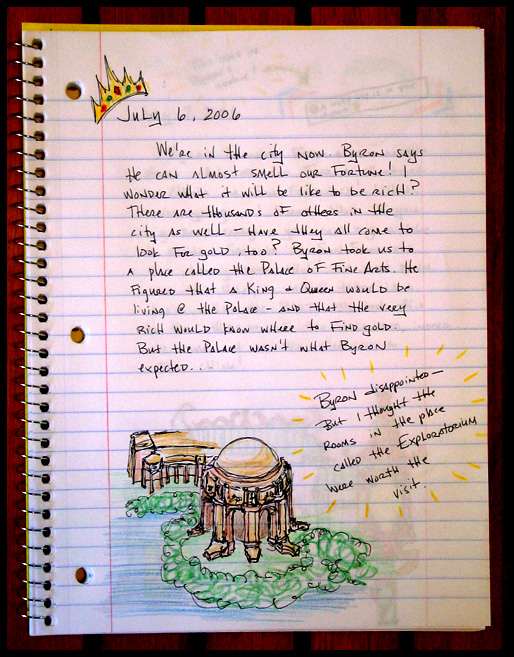 July 6, 2006
We're in the city now. Byron says
He can almost smell our fortune! I
wonder what it will be like to be rich?
There are thousands of others in the
city as well - Have they all come to
look for gold, too? Byron took us to
a place called the Palace of Fine Arts. He
figured that a King + Queen would be
living @ the Palace - and that the very
rich would know where to find gold.
But the Palace wasn't what Byron
expected...
Byron disappointed -
But I thought the
rooms in the place
called the Exploratorium
were worth the
visit.